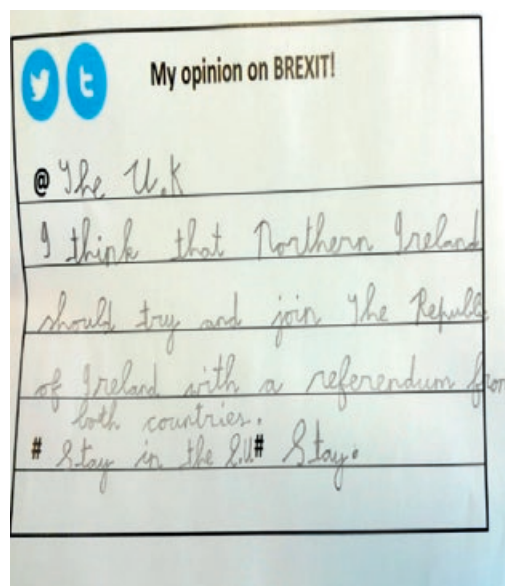 My opinion on BREXIT!
@ The U.K
I think that Northern Ireland
should try and join The Republic
of Ireland with a referendum from
both countries.
# Stay in the E.U # Stay.